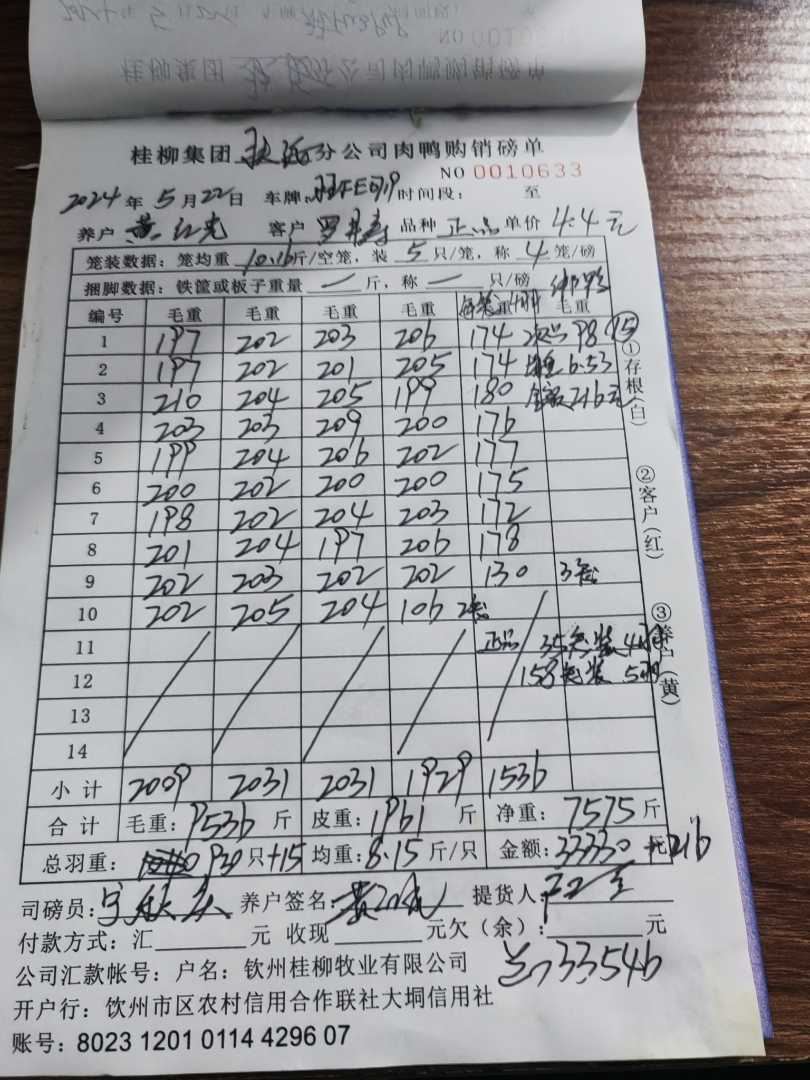 桂柳集团 分公司肉鸭购销磅单
NO 0010633
2024 年 5 月 22 日 车牌: 时间段: 至
养户 黄 客户 罗 品种 正品 单价 4.4元
笼装数据: 笼均重 10.16 斤/空笼, 装 5 只/笼, 称 4 笼/磅
捆脚数据: 铁筐或板子重量 — 斤, 称 — 只/磅
编号 毛重 毛重 毛重 毛重 毛重 毛重
1 197 202 203 206 174 次品 98 15
2 197 202 201 205 174 6.53
3 210 204 205 199 180 金额 216元
4 203 203 209 200 176
5 199 204 206 202 177
6 200 202 200 200 175
7 198 202 204 203 172
8 201 204 197 206 178
9 202 203 202 202 130 3笼
10 202 205 204 106 2笼
11 正品 35笼装4
12 158笼装5
13
14
小计 2009 2031 2031 1929 1536
合计 毛重: 9536 斤 皮重: 1961 斤 净重: 7575 斤
总羽重: 930 只+15 均重: 8.15 斤/只 金额: 33330 元 216
司磅员: 养户签名: 提货人:
付款方式: 汇 元 收现 元欠(余): 元
公司汇款帐号: 户名: 钦州桂柳牧业有限公司 33546
开户行: 钦州市区农村信用合作联社大垌信用社
账号: 8023 1201 0114 4296 07
①存根(白)
②客户(红)
③养户(黄)